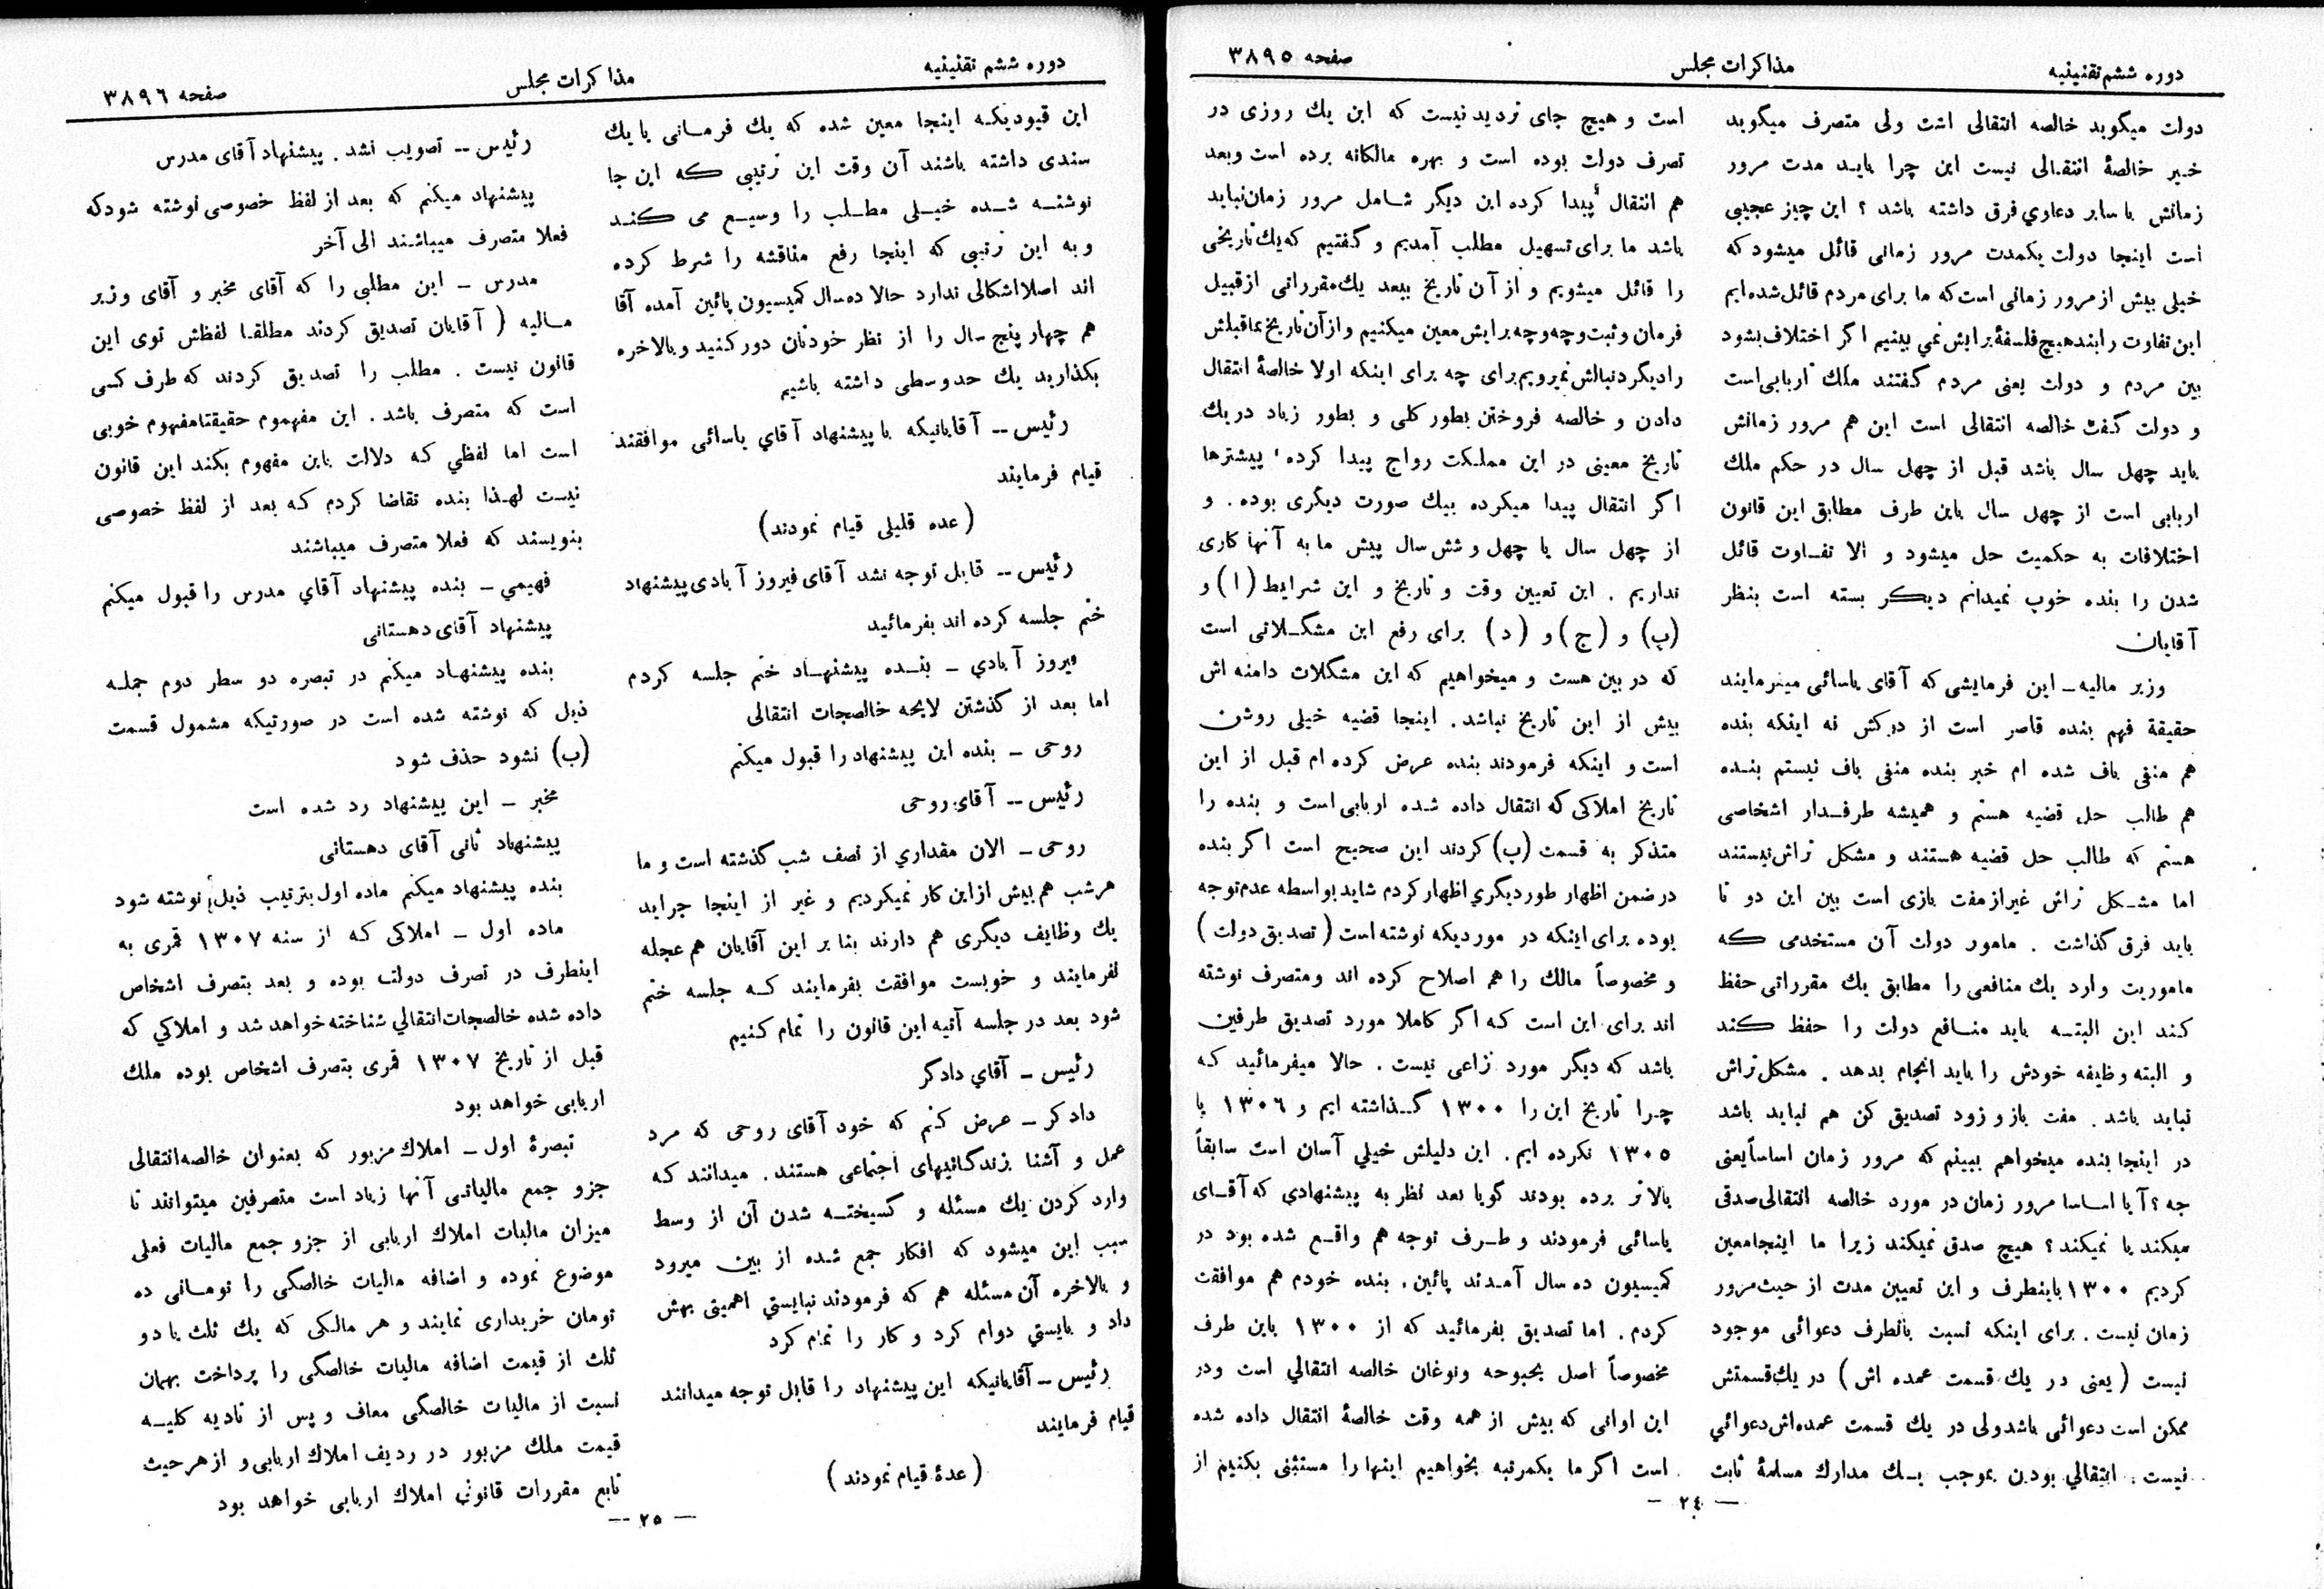 دوره ششم تقنینیه
مذاکرات مجلس
صفحه ۳۸۹۵
دولت میگوید خالصه انتقالی است ولی متصرف میگوید
خیر خالصهٔ انتقالی نیست این چرا باید مدت مرور
زمانش با سایر دعاوي فرق داشته باشد ؟ این چیز عجیبی
است اینجا دولت یکمدت مرور زمانی قائل میشود که
خیلی بیش از مرور زمانی است که ما برای مردم قائل شده ایم
این تفاوت را بنده هیچ فلسفهٔ برایش نمی بینیم اگر اختلاف بشود
بین مردم و دولت یعنی مردم گفتند ملك اربابی است
و دولت گفت خالصه انتقالی است این هم مرور زمانش
باید چهل سال باشد قبل از چهل سال در حکم ملك
اربابی است از چهل سال باین طرف مطابق این قانون
اختلافات به حکمیت حل میشود و الا تفاوت قائل
شدن را بنده خوب نمیدانم دیگر بسته است بنظر
آقایان
وزیر مالیه ـ این فرمایشی که آقای یاسائی میفرمایند
حقیقة فهم بنده قاصر است از درکش نه اینکه بنده
هم منفی باف شده ام خیر بنده منفی باف نیستم بنده
هم طالب حل قضیه هستم و همیشه طرفدار اشخاصی
هستم که طالب حل قضیه هستند و مشکل تراش نیستند
اما مشکل تراش غیر از مفت بازی است بین این دو تا
باید فرق گذاشت . مامور دولت آن مستخدمی که
ماموریت دارد یك منافعی را مطابق یك مقرراتی حفظ
کند این البته باید منافع دولت را حفظ کند
و البته وظیفه خودش را باید انجام بدهد . مشکل تراش
نباید باشد . مفت باز و زود تصدیق کن هم نباید باشد
در اینجا بنده میخواهم ببینم که مرور زمان اساساً یعنی
چه ؟ آیا اساسا مرور زمان در مورد خالصه انتقالی صدقی
میکند یا نمیکند ؟ هیچ صدق نمیکند زیرا ما اینجا معین
کردیم ۱۳۰۰ باینطرف و این تعیین مدت از حیث مرور
زمان نیست . برای اینکه نسبت بانطرف دعوائی موجود
نیست ( یعنی در یك قسمت عمده اش ) در یك قسمتش
ممکن است دعوائی باشد ولی در یك قسمت عمده اش دعوائي
نیست . انتقالي بودن بموجب یك مدارك مسلمهٔ ثابت
است و هیچ جای تردید نیست که این یك روزی در
تصرف دولت بوده است و بهره مالکانه برده است و بعد
هم انتقال پیدا کرده این دیگر شامل مرور زمان نباید
باشد ما برای تسهیل مطلب آمدیم و گفتیم که یك تاریخی
را قائل میشویم و از آن تاریخ ببعد یك مقرراتی از قبیل
فرمان و ثبت و چه و چه برایش معین میکنیم و از آن تاریخ بماقبلش
را دیگر دنبالش نمیرویم برای چه برای اینکه اولا خالصهٔ انتقال
دادن و خالصه فروختن بطور کلی و بطور زیاد در یك
تاریخ معینی در این مملکت رواج پیدا کرده ، پیشترها
اگر انتقال پیدا میکرده بیك صورت دیگری بوده . و
از چهل سال یا چهل و شش سال پیش ما به آنها کاری
نداریم . این تعیین وقت و تاریخ و این شرایط (ا) و
(ب) و (ج) و (د) برای رفع این مشگلاتی است
که در بین هست و میخواهیم که این مشگلات دامنه اش
بیش از این تاریخ نباشد . اینجا قضیه خیلی روشن
است و اینکه فرمودند بنده عرض کرده ام قبل از این
تاریخ املاکی که انتقال داده شده اربابی است و بنده را
متذکر به قسمت (ب) کردند این صحیح است اگر بنده
در ضمن اظهار طور دیگري اظهار کردم شاید بواسطه عدم توجه
بوده برای اینکه در موردیکه نوشته است ( تصدیق دولت )
و مخصوصاً مالك را هم اصلاح کرده اند و متصرف نوشته
اند برای این است که اگر کاملا مورد تصدیق طرفین
باشد که دیگر مورد نزاعی نیست . حالا میفرمائید که
چرا تاریخ این را ۱۳۰۰ گذاشته ایم و ۱۳۰۶ یا
۱۳۰۵ نکرده ایم . این دلیلش خیلي آسان است سابقاً
بالاتر برده بودند گویا بعد نظر به پیشنهادي که آقای
یاسائی فرمودند و طرف توجه هم واقع شده بود در
کمیسیون ده سال آمدند پائین . بنده خودم هم موافقت
کردم . اما تصدیق بفرمائید که از ۱۳۰۰ باین طرف
مخصوصاً اصل بحبوحه ونوغان خالصه انتقالي است ودر
این اوانی که بیش از همه وقت خالصهٔ انتقال داده شده
است اگر ما یکمرتبه بخواهیم اینها را مستثنی بکنیم از
— ۲٤ —
دوره ششم تقنینیه
مذاکرات مجلس
صفحه ۳۸۹٦
این قیودیکه اینجا معین شده که یك فرمانی یا یك
سندی داشته باشند آن وقت این ترتیبی که این جا
نوشته شده خیلی مطلب را وسیع می کند
و به این ترتیبی که اینجا رفع مناقشه را شرط کرده
اند اصلا اشکالی ندارد حالا ده سال کمیسیون پائین آمده آقا
هم چهار پنج سال را از نظر خودتان دور کنید و بالاخره
بگذارید یك حد وسطی داشته باشیم
رئیس ــ آقایانیکه با پیشنهاد آقاي یاسائی موافقند
قیام فرمایند
(عده قلیلی قیام نمودند)
رئیس ــ قابل توجه نشد آقای فیروز آبادی پیشنهاد
ختم جلسه کرده اند بفرمائید
فیروز آبادي ـ بنده پیشنهاد ختم جلسه کردم
اما بعد از گذشتن لایحه خالصجات انتقالی
روحی ـ بنده این پیشنهاد را قبول میکنم
رئیس ــ آقای روحی
روحی ـ الان مقداري از نصف شب گذشته است و ما
هر شب هم بیش از این کار نمیکردیم و غیر از اینجا جراید
یك وظایف دیگری هم دارند بنا بر این آقایان هم عجله
نفرمایند و خوبست موافقت بفرمایند که جلسه ختم
شود بعد در جلسه آتیه این قانون را تمام کنیم
رئیس ـ آقاي دادگر
دادگر ـ عرض کنم که خود آقای روحی که مرد
عمل و آشنا بزندگانیهای اجتماعی هستند . میدانند که
وارد کردن یك مسئله و گسیخته شدن آن از وسط
سبب این میشود که افکار جمع شده از بین میرود
و بالاخره آن مسئله هم که فرمودند نبایستي اهمیتی بهش
داد و بایستي دوام کرد و کار را تمام کرد
رئیس ــ آقایانیکه این پیشنهاد را قابل توجه میدانند
قیام فرمایند
(عدهٔ قیام نمودند)
رئیس ــ تصویب نشد . پیشنهاد آقای مدرس
پیشنهاد میکنم که بعد از لفظ خصوصی نوشته شود که
فعلا متصرف میباشند الی آخر
مدرس ـ این مطلبی را که آقای مخبر و آقای وزیر
مالیه ( آقایان تصدیق کردند مطلقا لفظش توی این
قانون نیست . مطلب را تصدیق کردند که طرف کسی
است که متصرف باشد . این مفهموم حقیقتا مفهوم خوبی
است اما لفظي که دلالت باین مفهوم بکند این قانون
نیست لهذا بنده تقاضا کردم که بعد از لفظ خصوصی
بنویسند که فعلا متصرف میباشند
فهیمي ـ بنده پیشنهاد آقاي مدرس را قبول میکنم
پیشنهاد آقای دهستانی
بنده پیشنهاد میکنم در تبصره دو سطر دوم جمله
ذیل که نوشته شده است در صورتیکه مشمول قسمت
(ب) نشود حذف شود
مخبر ـ این پیشنهاد رد شده است
پیشنهاد ثانی آقای دهستانی
بنده پیشنهاد میکنم ماده اول بترتیب ذیل نوشته شود
ماده اول ـ املاکی که از سنه ۱۳۰۷ قمری به
اینطرف در تصرف دولت بوده و بعد بتصرف اشخاص
داده شده خالصجات انتقالي شناخته خواهد شد و املاکي که
قبل از تاریخ ۱۳۰۷ قمری بتصرف اشخاص بوده ملك
اربابی خواهد بود
تبصرهٔ اول ـ املاك مزبور که بعنوان خالصه انتقالی
جزو جمع مالیاتی آنها زیاد است متصرفین میتوانند تا
میزان مالیات املاك اربابی از جزو جمع مالیات فعلی
موضوع نموده و اضافه مالیات خالصگی را تومانی ده
تومان خریداری نمایند و هر مالکی که یك ثلث یا دو
ثلث از قیمت اضافه مالیات خالصگی را پرداخت بهمان
نسبت از مالیات خالصگی معاف و پس از تادیه کلیه
قیمت ملك مزبور در ردیف املاك اربابی و از هر حیث
تابع مقررات قانونی املاك اربابی خواهد بود
— ۲۵ —